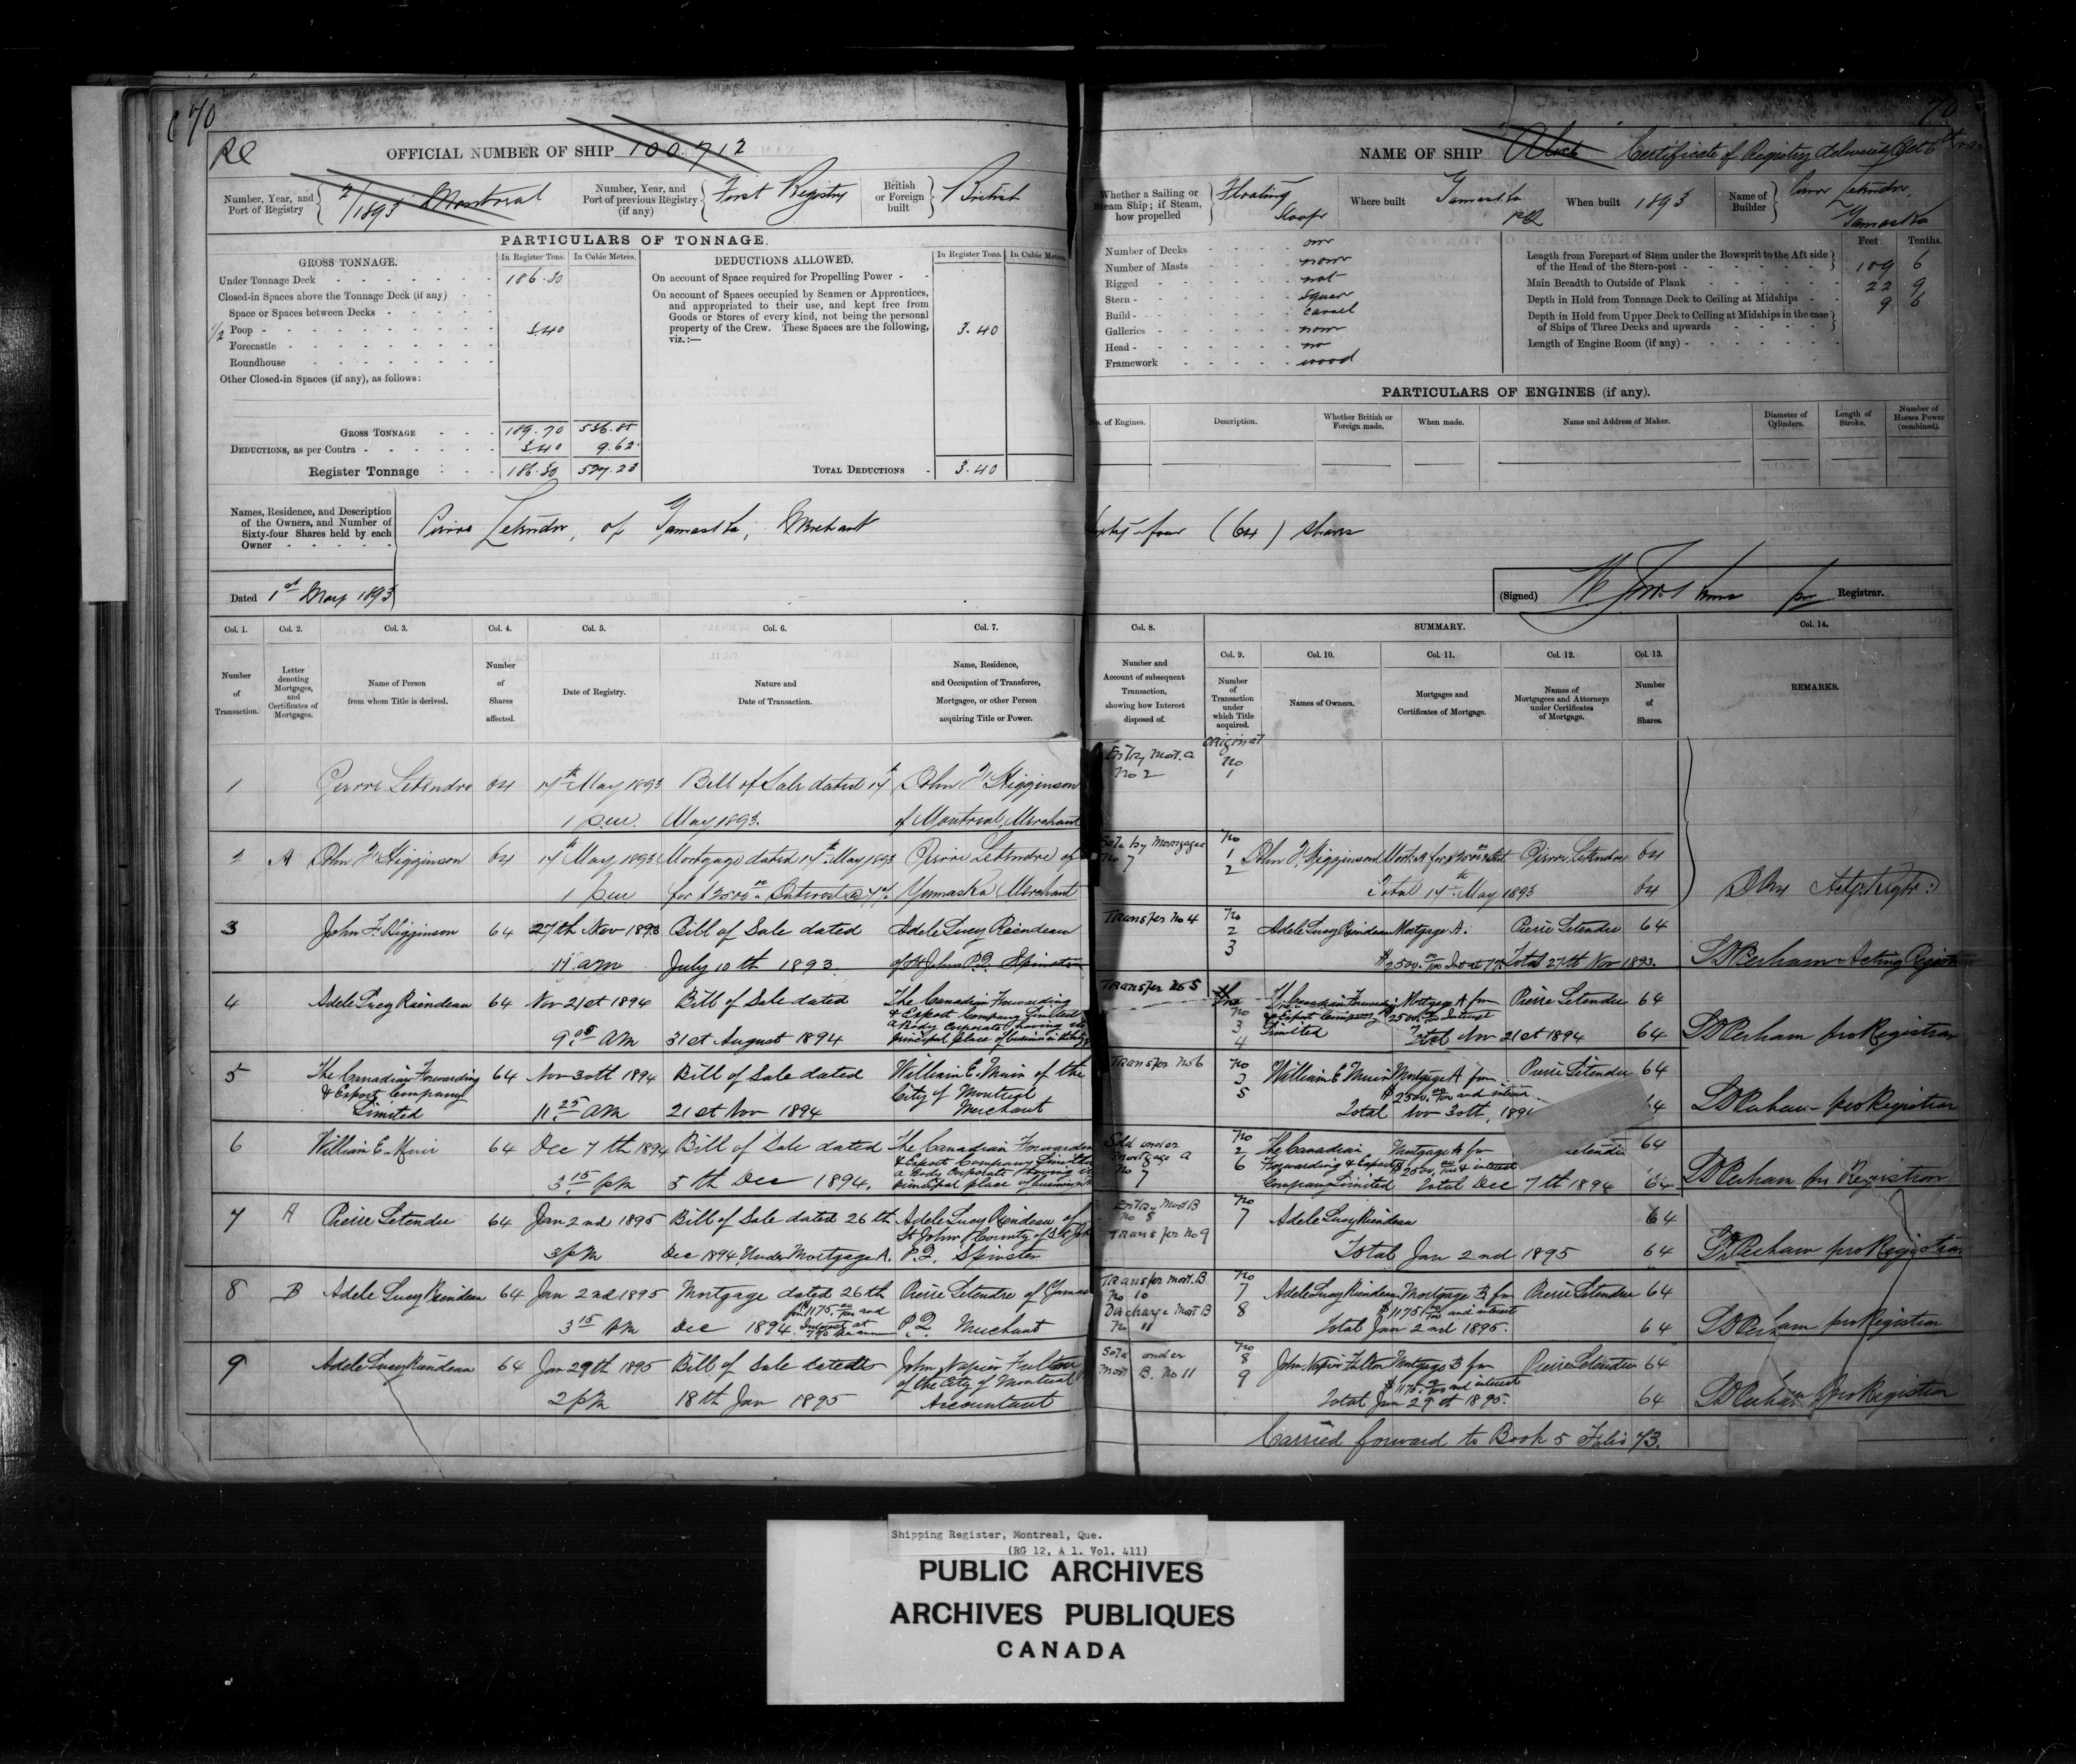 70
70
RQ
OFFICIAL NUMBER OF SHIP 100.712
NAME OF SHIP Alice Certificate of Registry delivered Oct 6th
Number, Year, and Port of Registry 7/1893 Montreal
Number, Year, and Port of previous Registry (if any) First Registry
British or Foreign built British
Whether a Sailing or Steam Ship; if Steam, how propelled Floating
Where built Yamaska PQ
When built 1893
Name of Builder Pierre Letendre, Yamaska
PARTICULARS OF TONNAGE.
GROSS TONNAGE. In Register Tons. In Cubic Metres.
DEDUCTIONS ALLOWED. In Register Tons. In Cubic Metres.
Under Tonnage Deck 186.30
Closed-in Spaces above the Tonnage Deck (if any)
Space or Spaces between Decks
1/2 Poop 3.40
Forecastle
Roundhouse
Other Closed-in Spaces (if any), as follows:
GROSS TONNAGE 189.70 536.85
DEDUCTIONS, as per Contra 3.40 9.62
Register Tonnage 186.30 527.23
On account of Space required for Propelling Power
On account of Spaces occupied by Seamen or Apprentices, and appropriated to their use, and kept free from Goods or Stores of every kind, not being the personal property of the Crew. These Spaces are the following, viz.:— 3.40
TOTAL DEDUCTIONS 3.40
Number of Decks one
Number of Masts none
Rigged not
Stern square
Build carvel
Galleries none
Head no
Framework wood
Feet Tenths.
Length from Forepart of Stem under the Bowsprit to the Aft side of the Head of the Stern-post 109 6
Main Breadth to Outside of Plank 22 9
Depth in Hold from Tonnage Deck to Ceiling at Midships 9 6
Depth in Hold from Upper Deck to Ceiling at Midships in the case of Ships of Three Decks and upwards
Length of Engine Room (if any)
PARTICULARS OF ENGINES (if any).
No. of Engines. Description. Whether British or Foreign made. When made. Name and Address of Maker. Diameter of Cylinders. Length of Stroke. Number of Horses Power (combined).
Names, Residence, and Description of the Owners, and Number of Sixty-four Shares held by each Owner
Pierre Letendre, of Yamaska, Merchant Sixty-four (64) shares
Dated 1st May 1893
(Signed) pro Registrar.
Col. 1. Col. 2. Col. 3. Col. 4. Col. 5. Col. 6. Col. 7. Col. 8. SUMMARY. Col. 14.
Col. 9. Col. 10. Col. 11. Col. 12. Col. 13.
Number of Transaction.
Letter denoting Mortgages, and Certificates of Mortgages.
Name of Person from whom Title is derived.
Number of Shares affected.
Date of Registry.
Nature and Date of Transaction.
Name, Residence, and Occupation of Transferee, Mortgagee, or other Person acquiring Title or Power.
Number and Account of subsequent Transaction, showing how Interest disposed of.
Number of Transaction under which Title acquired.
Names of Owners.
Mortgages and Certificates of Mortgage.
Names of Mortgagees and Attorneys under Certificates of Mortgage.
Number of Shares.
REMARKS.
1 Pierre Letendre 64 17th May 1893 Bill of Sale dated 17th John F Higginson
1 p.m. May 1893. of Montreal, Merchant
Entry Mort. A No 2 Original No 1
2 A John F Higginson 64 17th May 1893 Mortgage dated 17th May 1893 Pierre Letendre of
1 p.m. for $2500.00 Interest @ 7% Yamaska Merchant
Sale by Mortgagee No 7 No 1 2 John F. Higginson Mort. A for $2500.00 & Int Pierre Letendre 64
Total 17th May 1893 64
3 John F. Higginson 64 27th Nov 1893 Bill of Sale dated Adele Lucy Reindeau
11 am July 10th 1893. of St Johns P.Q. Spinster
Transfer No 4 No 2 3 Adele Lucy Reindeau Mortgage A. Pierre Letendre 64
$2500.00/100 Int at 7% Total 27th Nov 1893. Acting Registrar
4 Adele Lucy Reindeau 64 Nov 21st 1894 Bill of Sale dated The Canadian Forwarding & Export Company Limited a Body Corporate having its principal place of business in
9.05 AM 31st August 1894
Transfer No 5 No 3 4 The Canadian Forwarding & Export Company Limited Mortgage A for $2500.00 Interest Pierre Letendre 64
Total Nov 21st 1894 64 pro Registrar
5 The Canadian Forwarding & Export Company Limited 64 Nov 30th 1894 Bill of Sale dated William E. Muir of the City of Montreal Merchant
11.25 AM 21st Nov 1894
Transfer No 6 No 2 5 William E Muir Mortgage A for $2500.00/100 and interest Pierre Letendre 64
Total Nov 30th, 1894 pro Registrar
6 William E. Muir 64 Dec 7th 1894 Bill of Sale dated The Canadian Forwarding & Export Company Limited a Body Corporate having its principal place of business
3.15 pm 5th Dec 1894.
Sold under Mortgage A No 7 No 2 6 The Canadian Forwarding & Export Company Limited Mortgage A for $2500.00/100 & interest 64
Total Dec 7th 1894 64 pro Registrar
7 A Pierre Letendre 64 Jan 2nd 1895 Bill of Sale dated 26th Adele Lucy Reindeau of St Johns County of St Johns
3 pm Dec 1894, Under Mortgage A. P.Q. Spinster
Entry Mort B No 8 Transfer No 9 No 7 Adele Lucy Reindeau 64
Total Jan 2nd 1895 64 pro Registrar
8 B Adele Lucy Reindeau 64 Jan 2nd 1895 Mortgage dated 26th Pierre Letendre of Yamaska
3.15 PM Dec 1894. for $1175.00/100 and Interest at 7% per annum P.Q. Merchant
Transfer Mort. B No 10 Discharge Mort B No 11 No 7 8 Adele Lucy Reindeau Mortgage B for $1175.00/100 and interest Pierre Letendre 64
Total Jan 2nd 1895. 64 pro Registrar
9 Adele Lucy Reindeau 64 Jan 29th 1895 Bill of Sale dated John Napier Fulton of the City of Montreal
2 pm 18th Jan 1895 Accountant
Sold under Mort B. No 11 No 8 9 John Napier Fulton Mortgage B for $1175.00/100 and interest Pierre Letendre 64
Total Jan 29th 1895. 64 pro Registrar
Carried forward to Book 5 Folio 73.
Shipping Register, Montreal, Que.
(RG 12, A 1. Vol. 411)
PUBLIC ARCHIVES
ARCHIVES PUBLIQUES
CANADA